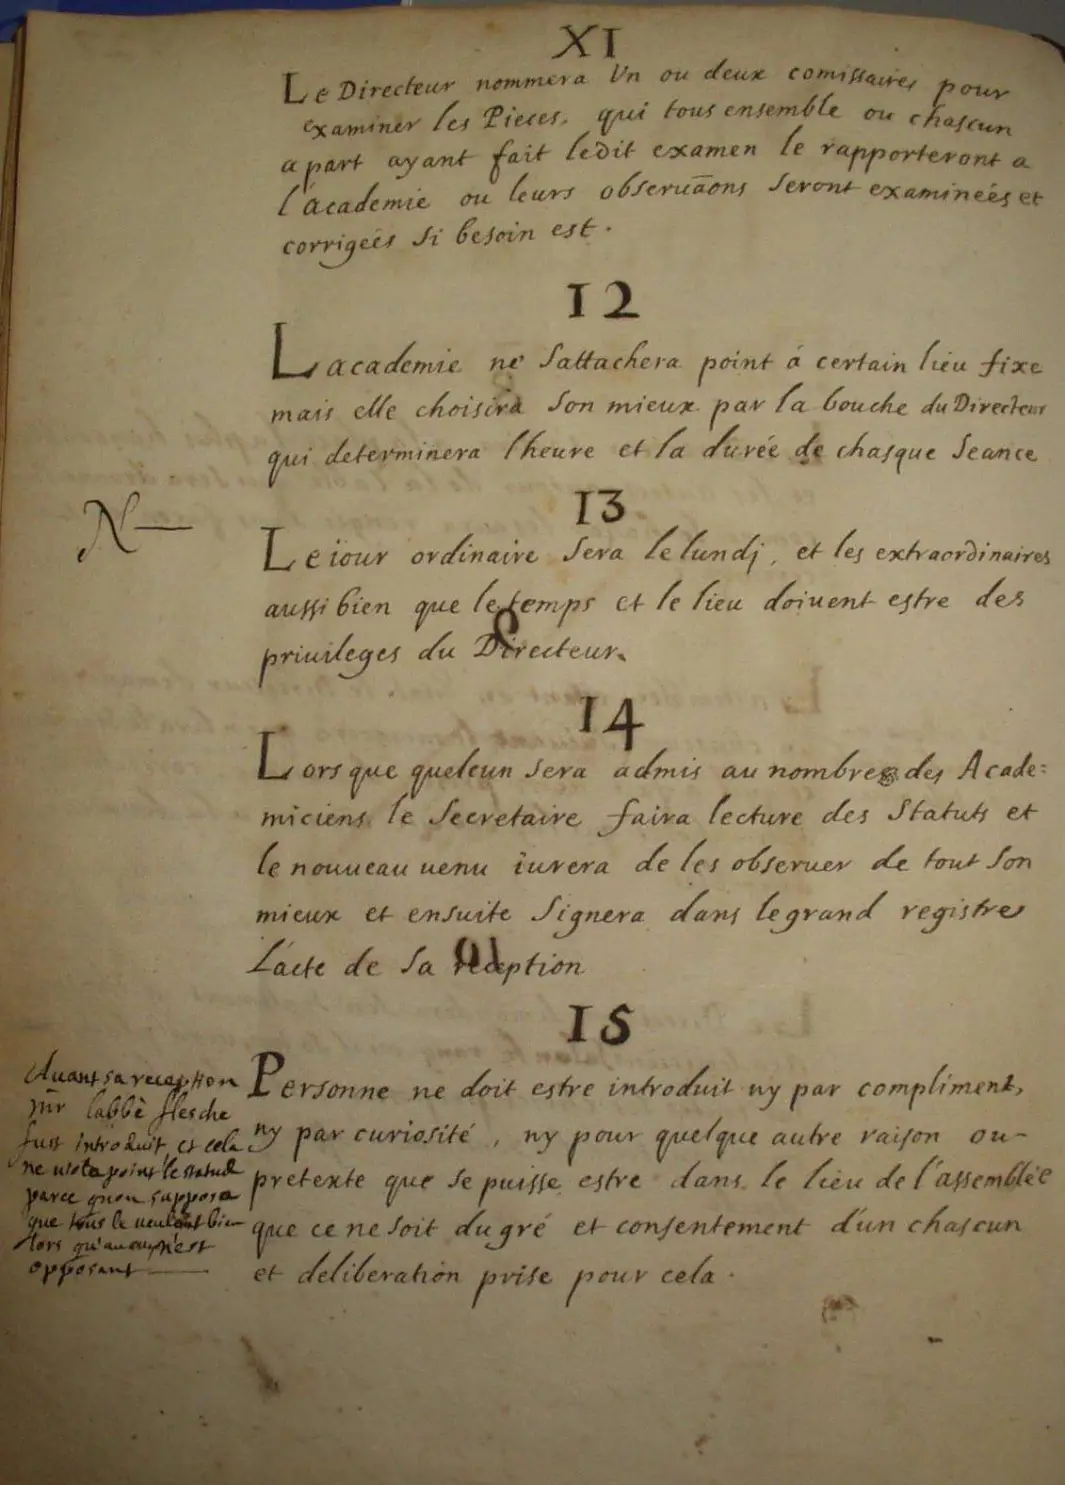 XI
Le Directeur nommera Un ou deux comissaires pour
examiner les Pieces, qui tous ensemble ou chascun
a part ayant fait ledit examen le rapporteront a
l'academie ou leurs obseruãons seront examineés et
corrigeés si besoin est.
12
Lacademie ne sattachera point á certain lieu fixe
mais elle choisira son mieux par la bouche du Directeur
qui determinera lheure et la durée de chasque seance
13
N
Le iour ordinaire sera le lundj, et les extraordinaires
aussi bien que le temps et le lieu doiuent estre des
priuileges du Directeur.
14
Lors que quelcun sera admis au nombre des Acade=
miciens le secretaire faira lecture des statuts et
le nouueau uenu iurera de les obseruer de tout son
mieux et ensuite signera dans le grand registre
L'acte de sa reception
15
Personne ne doit estre introduit ny par compliment,
ny par curiosité, ny pour quelque autre raison ou
pretexte que se puisse estre dans le lieu de l'assemblée
que ce ne soit du gré et consentement d'un chascun
et deliberation prise pour cela.
Auant sa reception
mr labbè flesche
fust introduit, et cela
ne uiola point le statut
parce qu'on supposa
que tous le ueulent bien
lors qu'aucun n'est
opposant